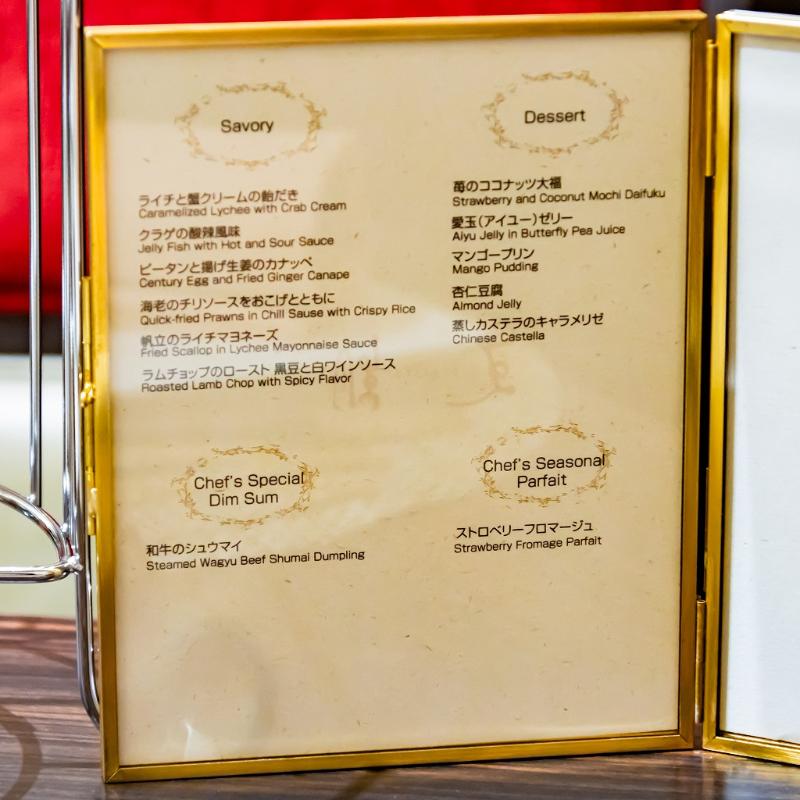 Savory
ライチと蟹クリームの飴だき
Caramelized Lychee with Crab Cream
クラゲの酸辣風味
Jelly Fish with Hot and Sour Sauce
ピータンと揚げ生姜のカナッペ
Century Egg and Fried Ginger Canape
海老のチリソースをおこげとともに
Quick-fried Prawns in Chill Sause with Crispy Rice
帆立のライチマヨネーズ
Fried Scallop in Lychee Mayonnaise Sauce
ラムチョップのロースト 黒豆と白ワインソース
Roasted Lamb Chop with Spicy Flavor
Chef's Special
Dim Sum
和牛のシュウマイ
Steamed Wagyu Beef Shumai Dumpling
Dessert
苺のココナッツ大福
Strawberry and Coconut Mochi Daifuku
愛玉(アイユー)ゼリー
Aiyu Jelly in Butterfly Pea Juice
マンゴープリン
Mango Pudding
杏仁豆腐
Almond Jelly
蒸しカステラのキャラメリゼ
Chinese Castella
Chef's Seasonal
Parfait
ストロベリーフロマージュ
Strawberry Fromage Parfait